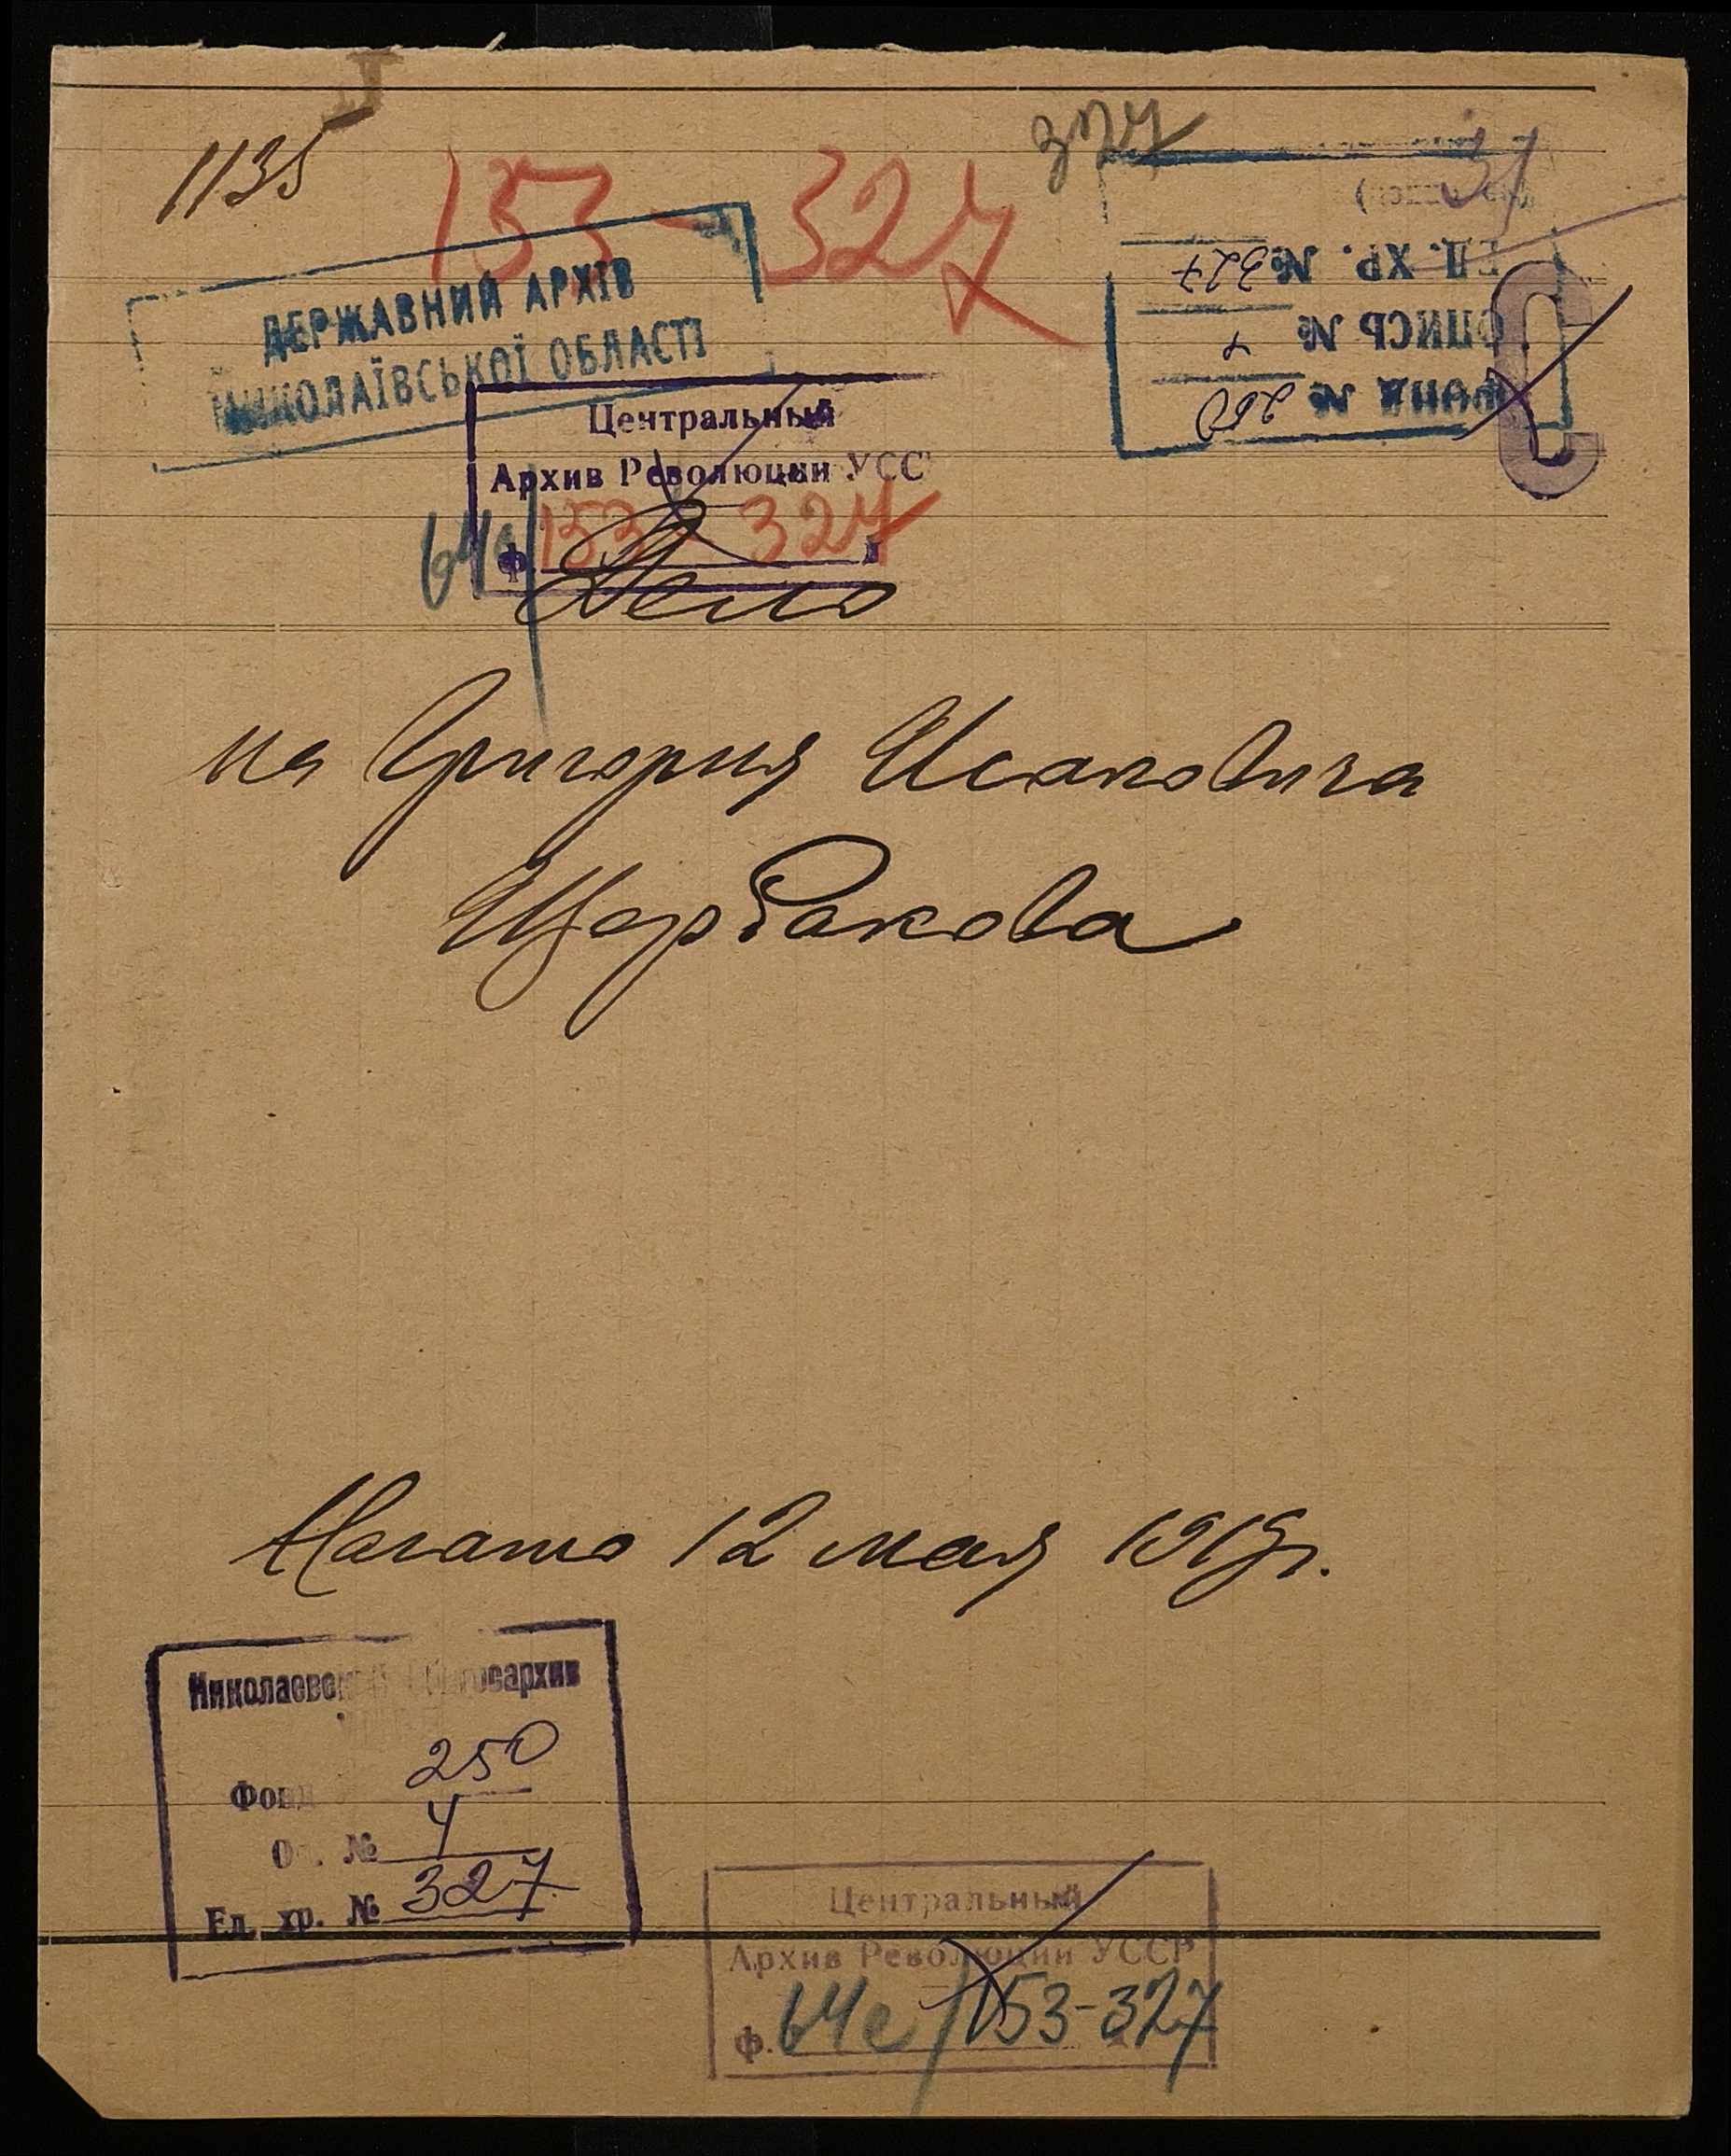 1135
153-327
327
31
ДЕРЖАВНИЙ АРХІВ
МИКОЛАЇВСЬКОЇ ОБЛАСТІ
ФОНД № 250
ОПИСЬ № 4
ЕД. ХР. № 327
Центральный
Архив Революции УСС
ф. 153 327
Дело
на Григория Исаковича
Щербакова
Начато 12 мая 1919 г.
Николаевск госархив
Фонд 250
Оп. № 4
Ед. хр. № 327
Центральный
Архив Революции УССР
ф. 64с/153-327